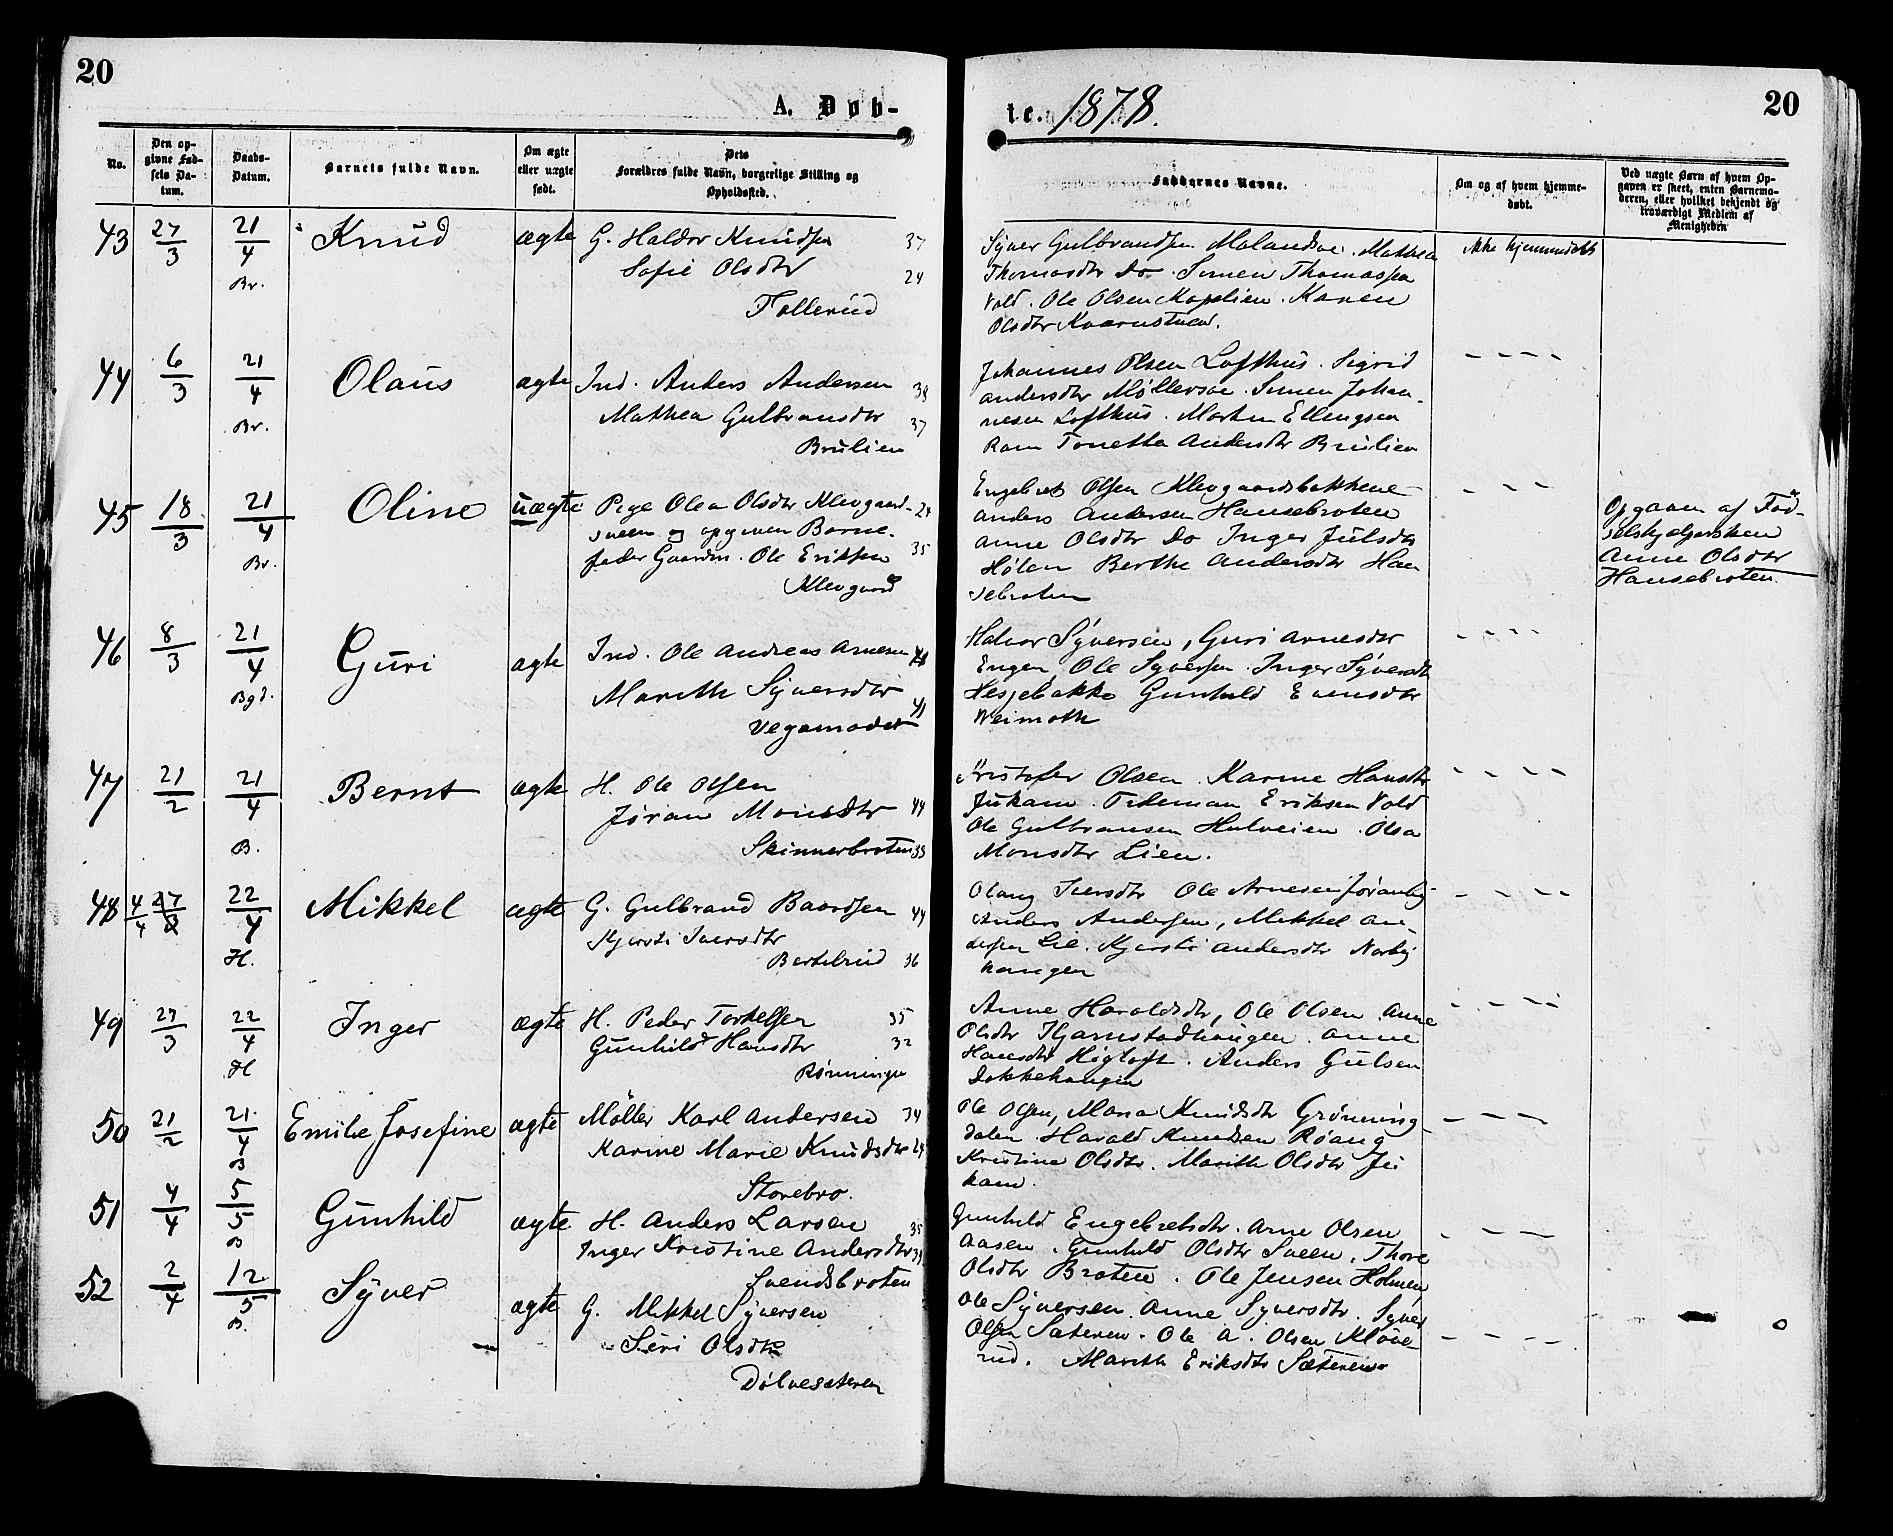 20
A. Døb-
te. 1878.
20
No.
Den op-
givne Fød-
sels Da-
tum.
Daabs-
Datum.
Barnets fulde Navn.
Om ægte
eller uægte
født.
Dets
Forældres fulde Navn, borgerlige Stilling og
Opholdssted.
Faddernes Navne.
Om og af hvem hjemme-
døbt.
Ved uægte Børn af hvem Op-
gaven er skeet, enten Barnemo-
deren, eller hvilket bekjendt og
troværdigt Medlem af
Menigheden
43 27/3 21/4 Br. Knud ægte
G. Haldor Knudsen 37
Sofie Olsdtr 24
Tollerud
Syver Gulbrandsen Molandsøe. Mathea
Thomasdtr Do. Simen Thomassen
Vold. Ole Olsen Karen
Olsdtr Kværnstuen.
Ikke hjemmedøbt
44 6/3 21/4 Br. Olaus ægte
Ind. Anders Andersen 38
Mathea Gulbransdtr 37
Brulien
Johannes Olsen Lofthus. Sigrid
Andersdtr Simen Johan-
nesen Lofthus. Morten Ellengsen
Ram Tonetta Andersdtr Brulien
- - - -
45 18/3 21/4 Br. Oline uægte
Pige Olea Olsdtr Klevgaard- 24
sveen og opgiven Barne-
fader Gaardm. Ole Eriksen 35
Klevgaard
Engebret Olsen Klevgaardsbakkene
Anders Andersen Hansebroten
Anne Olsdtr Do Inger Julsdtr
Hølen Berthe Andersdtr Han
sebroten
- - -
Opgaven af Fød-
selshjelpersken
Anne Olsdtr
Hansebroten
46 8/3 21/4 Bgd. Guri ægte
Ind. Ole Andreas Arnesen
Marith Syversdtr 41
Vegamodet
Halvor Syversen, Guri Arnesdtr
Engen, Ole Syversen. Inger Syversdtr
Hesjebakke Gunhild Evensdtr
Veimoth
- - - -
47 21/2 21/4 B. Bernt ægte
H. Ole Olsen
Jøran Monsdtr 44
Skinnerbroten 33
Kristofer Olsen. Karine Hansdtr
Jukam. Tideman Eriksen Vold
Ole Gulbransen Hulveien. Olea
Monsdtr Lien.
- - - -
48 4/4 27/3 22/4 H. Mikkel ægte
G. Gulbrand Baardsen 44
Kjersti Iversdtr
Bertilrud 36
Olaug Iversdtr Ole Arnesen Jøranby
Anders Andersen, Mikkel An-
dersen Lie. Kjersti Andersdtr Norby
haugen
- - - -
49 27/3 22/4 H Inger ægte
H. Peder Torkelsen 35
Gunhild Hansdtr 32
Rønningen
Anne Haroldsdtr, Ole Olsen Anne
Olsdtr Hjarnstadhaugen. Anne
Hansdtr Høgloft. Anders Gulsen
Dokkehaugen
- - - -
50 21/2 21/4 B Emilie Josefine ægte
Møller Karl Andersen 34
Karine Marie Knudsdtr 24
Storebro.
Ole Olsen, Maria Knudsdtr Grønning-
dalen Harald Knudsen Roang
Kristine Olsdtr. Marith Olsdtr Ju
kam.
- - -
51 4/4 5/5 B Gunhild ægte
H. Anders Larsen 35
Inger Kristine Andersdtr
Svendsbroten
Gunhild Engebretsdtr. Arne Olsen
Aasen. Gunhild Olsdtr Sveen. Thore
Olsdtr Braten. Ole Jensen Holmen,
- - -
52 2/4 12/5 B. Syver ægte
G. Mikkel Syversen
Siri Olsdtr
Dølvesæteren
Ole Syversen Anne Syversdtr. Syver
Olsen Sæteren. Ole A. Olsen Kløve-
rud. Marith Eriksdtr Sæteren
- - - -